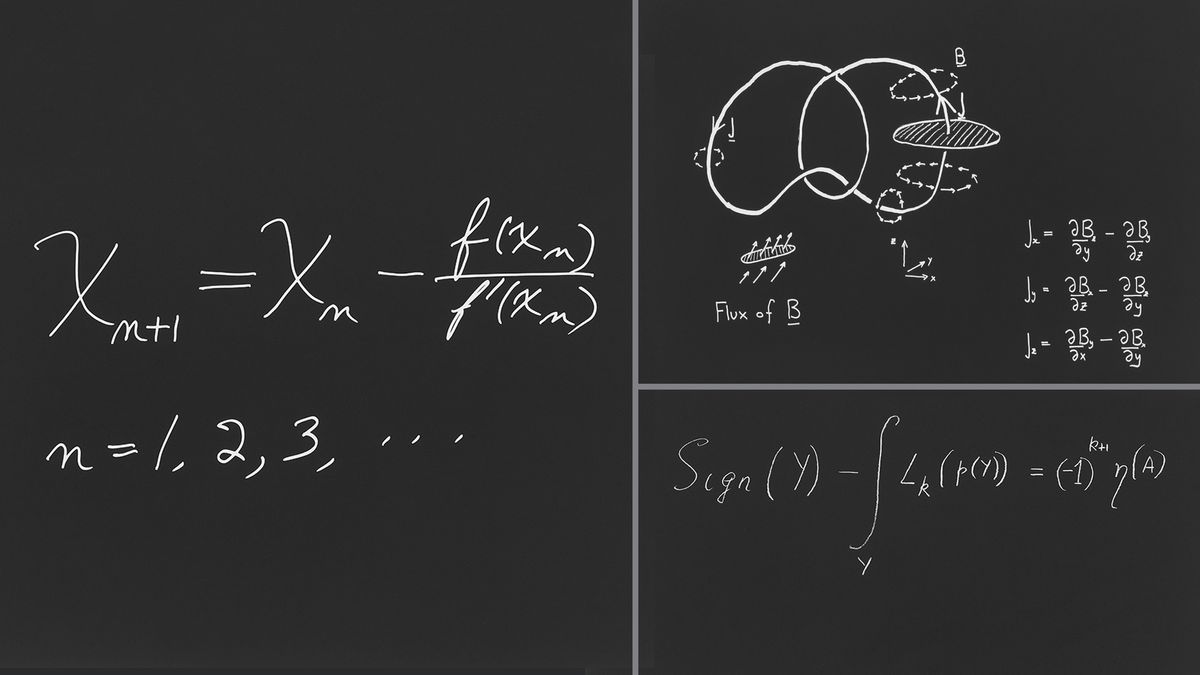 X_{n+1} = X_n − f(X_n) / f'(X_n)
n = 1, 2, 3, . . .
B
J
J
z
y
x
Flux of B
J_x = ∂B_z/∂y − ∂B_y/∂z
J_y = ∂B_x/∂z − ∂B_z/∂y
J_z = ∂B_y/∂x − ∂B_x/∂y
Sign (Y) − ∫_Y L_k (p(Y)) = (-1)^{k+1} η(A)